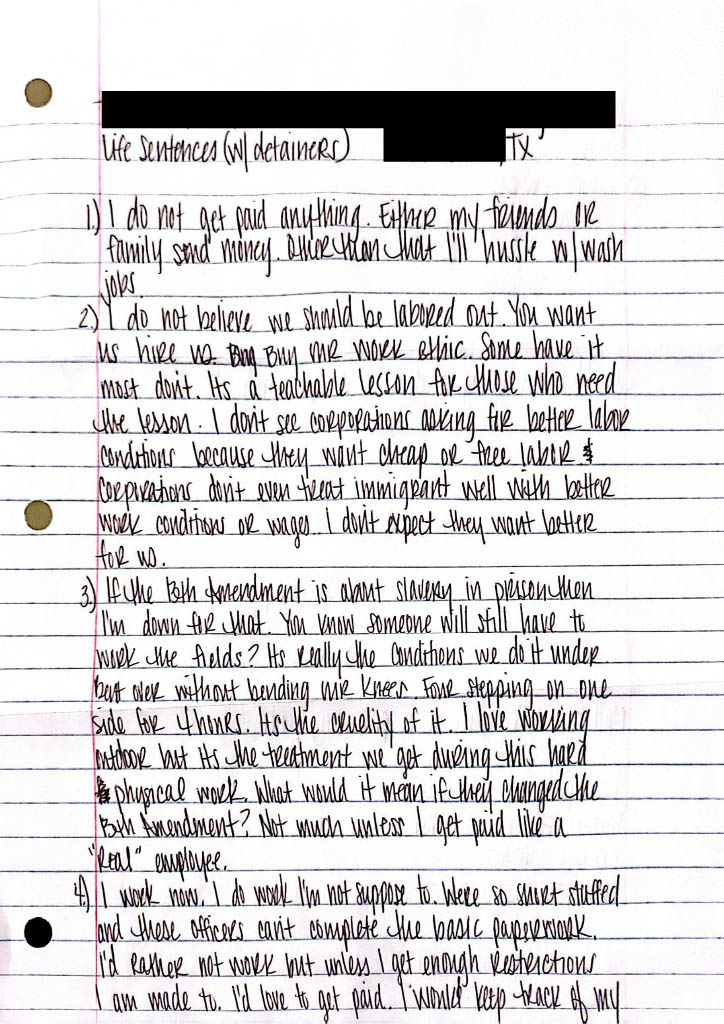 Life Sentences (w/ detainers) , TX
1.) I do not get paid anything. Either my friends or
family send money. Other than that I'll hussle w/ wash
jobs.
2.) I do not believe we should be labored out. You want
us hire us. Buy our work ethic. Some have it
most don't. Its a teachable lesson for those who need
the lesson. I don't see corporations asking for better labor
conditions because they want cheap or free labor. &
Corporations don't even treat immigrant well with better
work conditions or wages. I don't expect they want better
for us.
3.) If the 13th Amendment is about slavery in prison then
I'm down for that. You know someone will still have to
work the fields? Its really the conditions we do it under
bent over without bending our knees. Four stepping on one
side for 4 hours. Its the cruelity of it. I love working
outdoor but its the treatment we get during this hard
physical work. What would it mean if they changed the
13th Amendment? Not much unless I get paid like a
"Real" employee.
4.) I work now. I do work I'm not suppose to. Were so short staffed
and these officers can't complete the basic paperwork.
I'd rather not work but unless I get enough restrictions
I am made to. I'd love to get paid. I would keep track of my